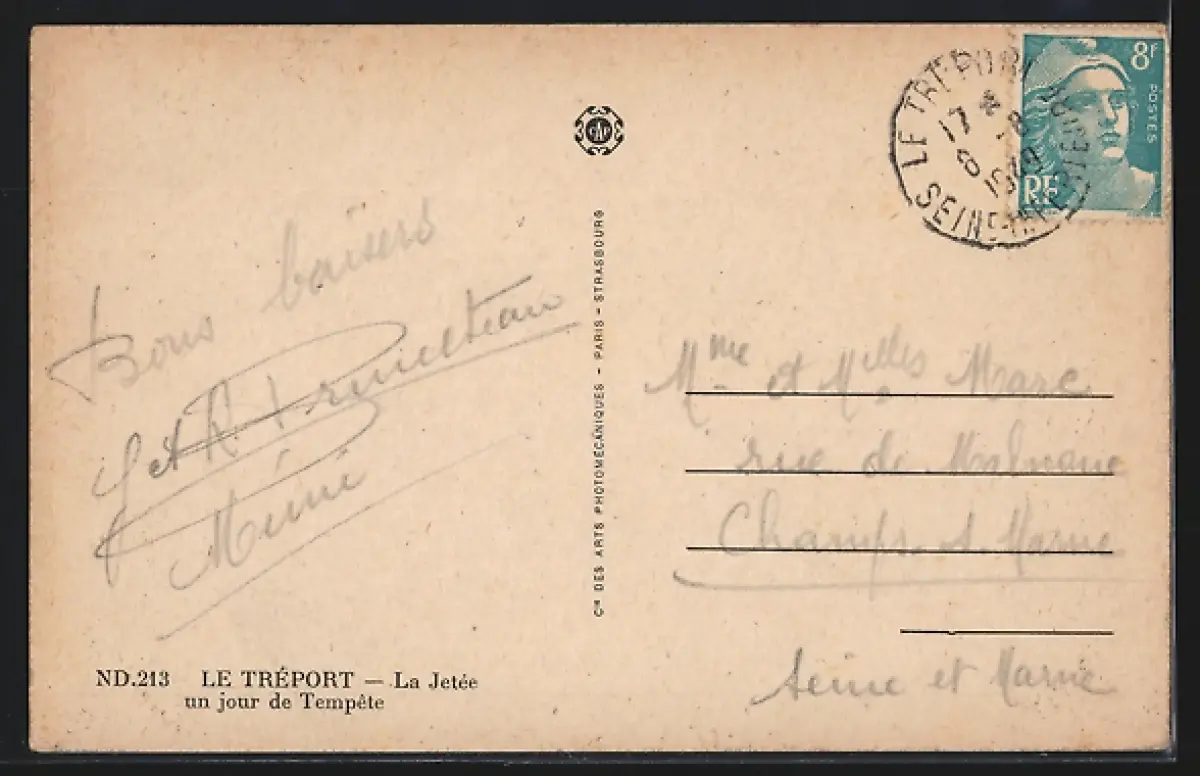 CAP
LE TRÉPORT
17 *
8 -8
1949
SEINE-INFRE
8F
POSTES
RF
Bons baisers
et
Mimi
Mme et Melles Marc
rue de Malnoue
Champs s. Marne
Seine et Marne
Cie DES ARTS PHOTOMÉCANIQUES - PARIS - STRASBOURG
ND.213 LE TRÉPORT — La Jetée
un jour de Tempête